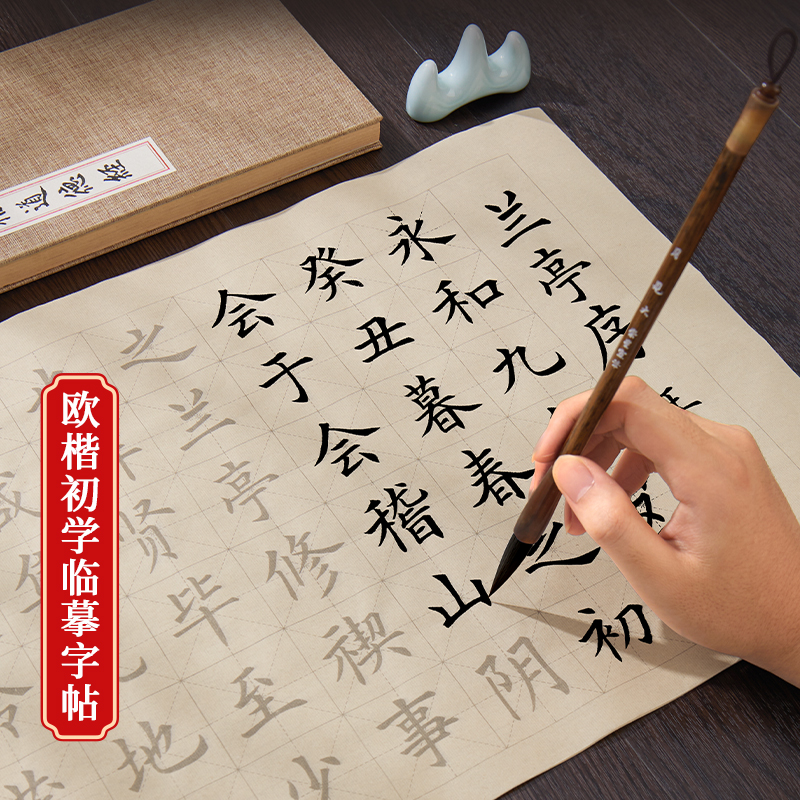 道德经
兰亭序
永和九
癸丑暮春之初
会于会稽山阴
之兰亭修禊事
贤毕至少
地
欧楷初学临摹字帖